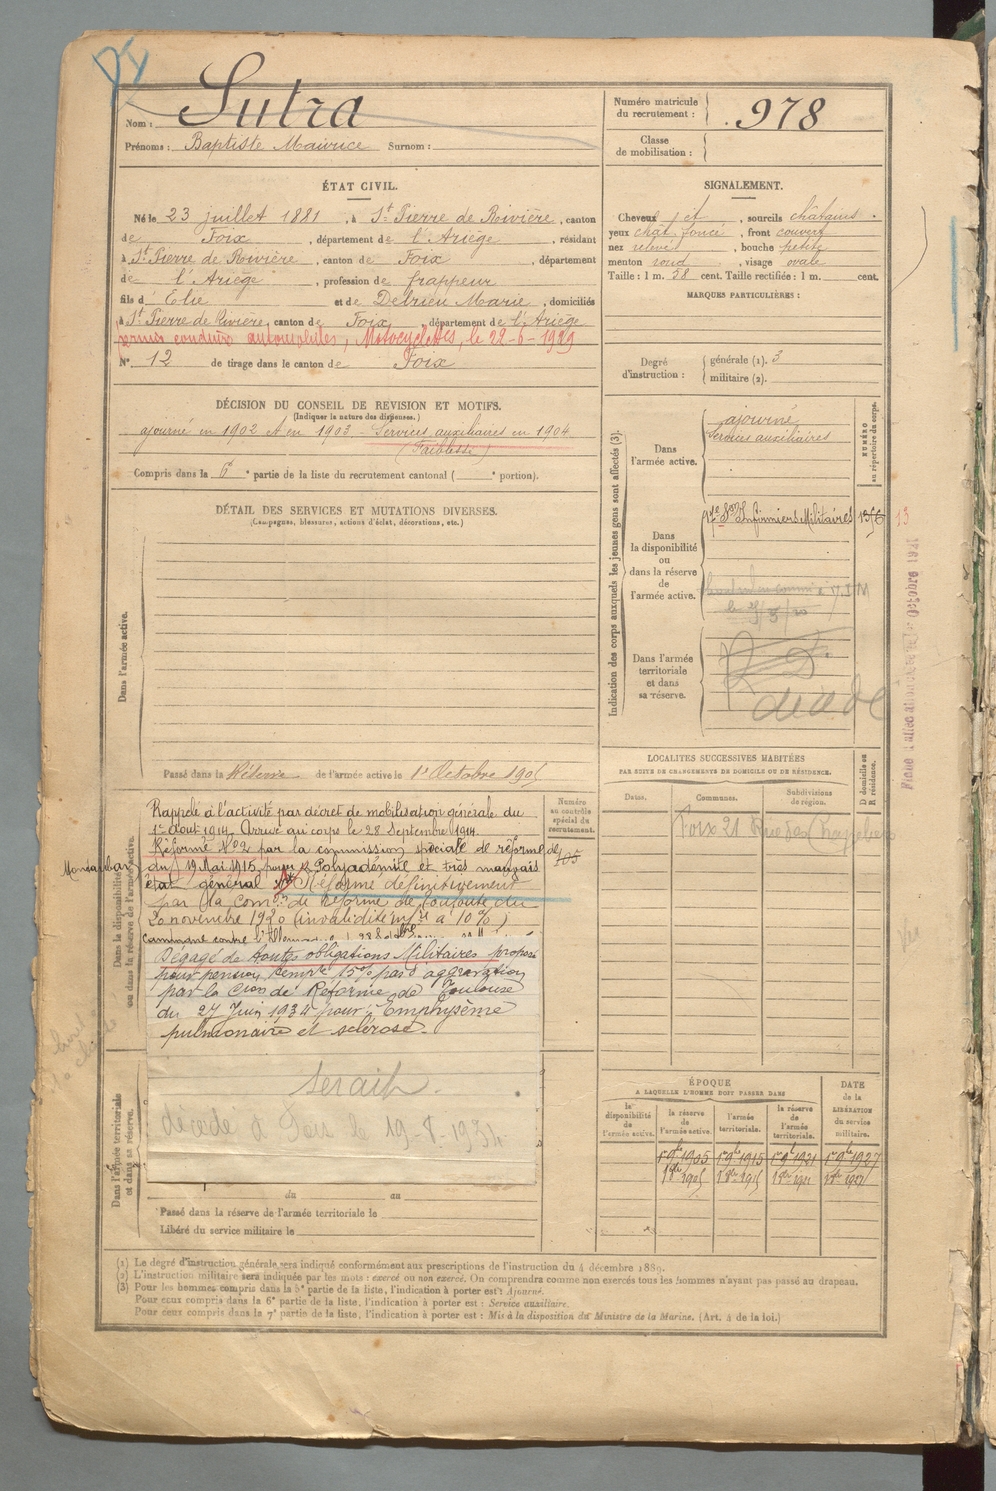 Sutra
Nom :
Prénoms : Baptiste Maurice Surnom :
Numéro matricule
du recrutement : 978
Classe
de mobilisation :
ÉTAT CIVIL.
Né le 23 juillet 1881, à St Pierre de Rivière, canton
de Foix, département de l'Ariège, résidant
à St Pierre de Rivière, canton de Foix, département
de l'Ariège, profession de frappeur
fils d' Elie et de Delrieu Marie, domiciliés
à St Pierre de Rivière, canton de Foix, département de l'Ariège
Motocyclettes, le 22-6-1929
N° 12 de tirage dans le canton de Foix
SIGNALEMENT.
Cheveux jit, sourcils châtains.
yeux chat. foncé, front couvert
nez relevé, bouche petite
menton rond, visage ovale
Taille : 1 m. 58 cent. Taille rectifiée : 1 m. cent.
MARQUES PARTICULIÈRES :
Degré
d'instruction :
générale (1). 3
militaire (2).
DÉCISION DU CONSEIL DE REVISION ET MOTIFS.
(Indiquer la nature des dispenses.)
ajourné en 1902 et en 1903 - Services auxiliaires en 1904
(Faiblesse)
Compris dans la 6e partie de la liste du recrutement cantonal ( e portion).
DÉTAIL DES SERVICES ET MUTATIONS DIVERSES.
(Campagnes, blessures, actions d'éclat, décorations, etc.)
Dans l'armée active.
Passé dans la Réserve de l'armée active le 1er Octobre 1905
Indication des corps auxquels les jeunes gens sont affectés (3).
NUMÉRO
au répertoire du corps.
Dans
l'armée active.
ajourné
Services auxiliaires
Dans
la disponibilité
ou
dans la réserve
de
l'armée active.
17e Son Infirmiers Militaires
13
Dans l'armée
territoriale
et dans
sa réserve.
décédé
Octobre 1921
LOCALITÉS SUCCESSIVES HABITÉES
PAR SUITE DE CHANGEMENTS DE DOMICILE OU DE RÉSIDENCE.
Dates.
Communes.
Subdivisions
de région.
D domicile ou
R résidence.
Foix 21 Rue des Chapeliers
Dans la disponibilité
ou dans la réserve de l'armée active.
Numéro
au contrôle
spécial du
recrutement.
105
Rappelé à l'activité par décret de mobilisation générale du
1er Août 1914. Arrivé au corps le 28 Septembre 1914.
Réformé N°2 par la commission spéciale de réforme de
Montauban
du 19 Mai 1915 pour Polyadénite et très mauvais
état général. Réformé définitivement
par la Com.on de Réforme de Toulouse du
20 novembre 1920 (invalidité infre à 10%)
Campagne contre l'Allemagne
Dégagé de toutes obligations Militaires proposé
pour pension temp.re 15% pas d'aggravation
par la Cion de Réforme de Toulouse
du 27 Juin 1934 pour : Emphysème
pulmonaire et sclérose.
serait
décédé à Foix le 19-8-1934
Dans l'armée territoriale
et dans sa réserve.
du au
Passé dans la réserve de l'armée territoriale le
Libéré du service militaire le
ÉPOQUE
A LAQUELLE L'HOMME DOIT PASSER DANS
DATE
de la
LIBÉRATION
du service
militaire.
la
disponibilité
de
l'armée active.
la réserve
de
l'armée active.
l'armée
territoriale.
la réserve
de
l'armée
territoriale.
1er 9bre 1905 1er 9bre 1915 1er 9bre 1921 1er 9bre 1927
1er 8bre 1905 1er 8bre 1915 1er 8bre 1921 1er 8bre 1927
(1) Le degré d'instruction générale sera indiqué conformément aux prescriptions de l'instruction du 4 décembre 1889.
(2) L'instruction militaire sera indiquée par les mots : exercé ou non exercé. On comprendra comme non exercés tous les hommes n'ayant pas passé au drapeau.
(3) Pour les hommes compris dans la 5e partie de la liste, l'indication à porter est : Ajourné.
Pour ceux compris dans la 6e partie de la liste, l'indication à porter est : Service auxiliaire.
Pour ceux compris dans la 7e partie de la liste, l'indication à porter est : Mis à la disposition du Ministre de la Marine. (Art. 4 de la loi.)